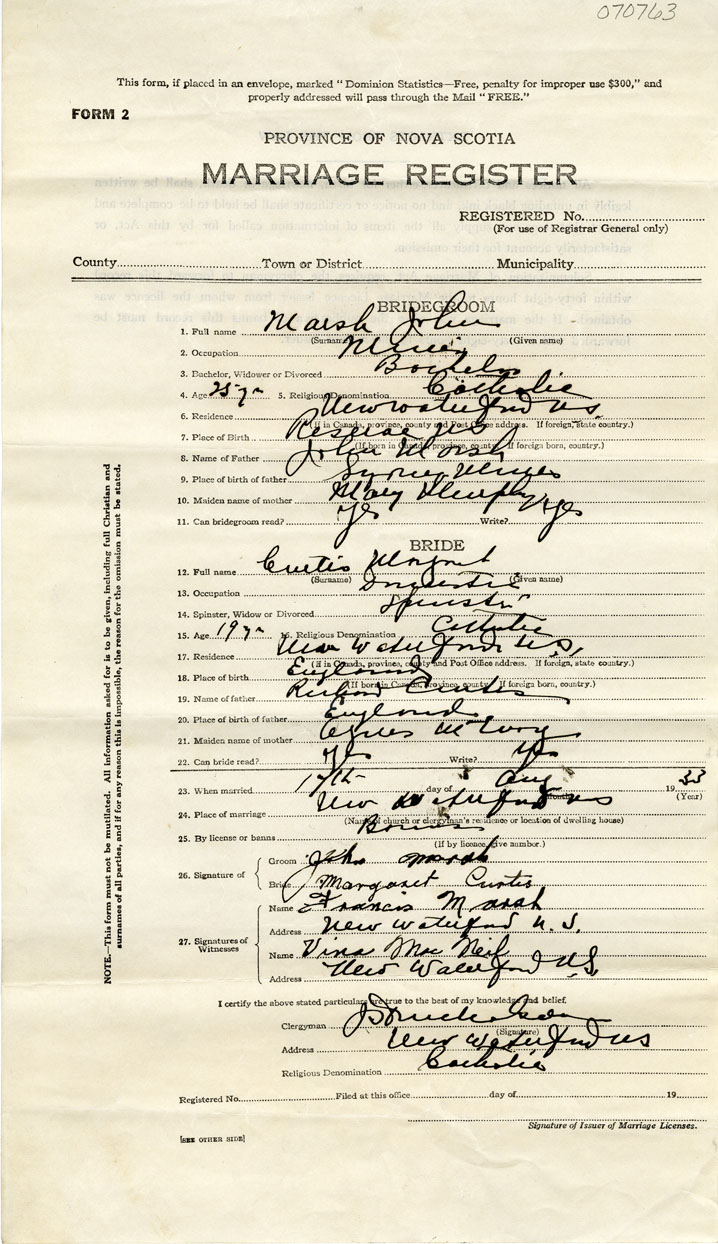 070763
This form, if placed in an envelope, marked “ Dominion Statistics—Free, penalty for improper use $300,” and
properly addressed will pass through the Mail “ FREE.”
FORM 2
PROVINCE OF NOVA SCOTIA
MARRIAGE REGISTER
REGISTERED No.
(For use of Registrar General only)
County Town or District Municipality
BRIDEGROOM
1. Full name Marsh John
(Surname) (Given name)
2. Occupation Miner
3. Bachelor, Widower or Divorced Bachelor
4. Age 25 yrs 5. Religious Denomination Catholic
6. Residence New Waterford N.S.
(If in Canada, province, county and Post Office address. If foreign, state country.)
7. Place of Birth Reserve N.S.
(If born in Canada, province, county. If foreign born, country.)
8. Name of Father John Marsh
9. Place of birth of father Sydney Mines
10. Maiden name of mother Mary Murphy
11. Can bridegroom read? Yes Write? Yes
BRIDE
12. Full name Curtis Margaret
(Surname) (Given name)
13. Occupation Domestic
14. Spinster, Widow or Divorced Spinster
15. Age 19 yrs 16. Religious Denomination Catholic
17. Residence New Waterford N.S.
(If in Canada, province, county and Post Office address. If foreign, state country.)
18. Place of birth England
(If born in Canada, province, county. If foreign born, country.)
19. Name of father Richard Curtis
20. Place of birth of father England
21. Maiden name of mother Agnes
22. Can bride read? Yes Write? Yes
23. When married 17th day of Aug 1933
(Month) (Year)
24. Place of marriage New Waterford N.S.
(Name of church or clergyman's residence or location of dwelling house)
25. By license or banns Banns
(If by licence, give number.)
26. Signature of Groom John Marsh
Bride Margaret Curtis
27. Signatures of Witnesses Name Francis Marsh
Address New Waterford N.S.
Name Vina Mac Neil
Address New Waterford N.S.
I certify the above stated particulars are true to the best of my knowledge and belief.
Clergyman
(Signature)
Address New Waterford N.S.
Religious Denomination Catholic
Registered No. Filed at this office day of 19
Signature of Issuer of Marriage Licenses.
[SEE OTHER SIDE]
NOTE.—This form must not be mutilated. All information asked for is to be given, including full Christian and
surnames of all parties, and if for any reason this is impossible, the reason for the omission must be stated.